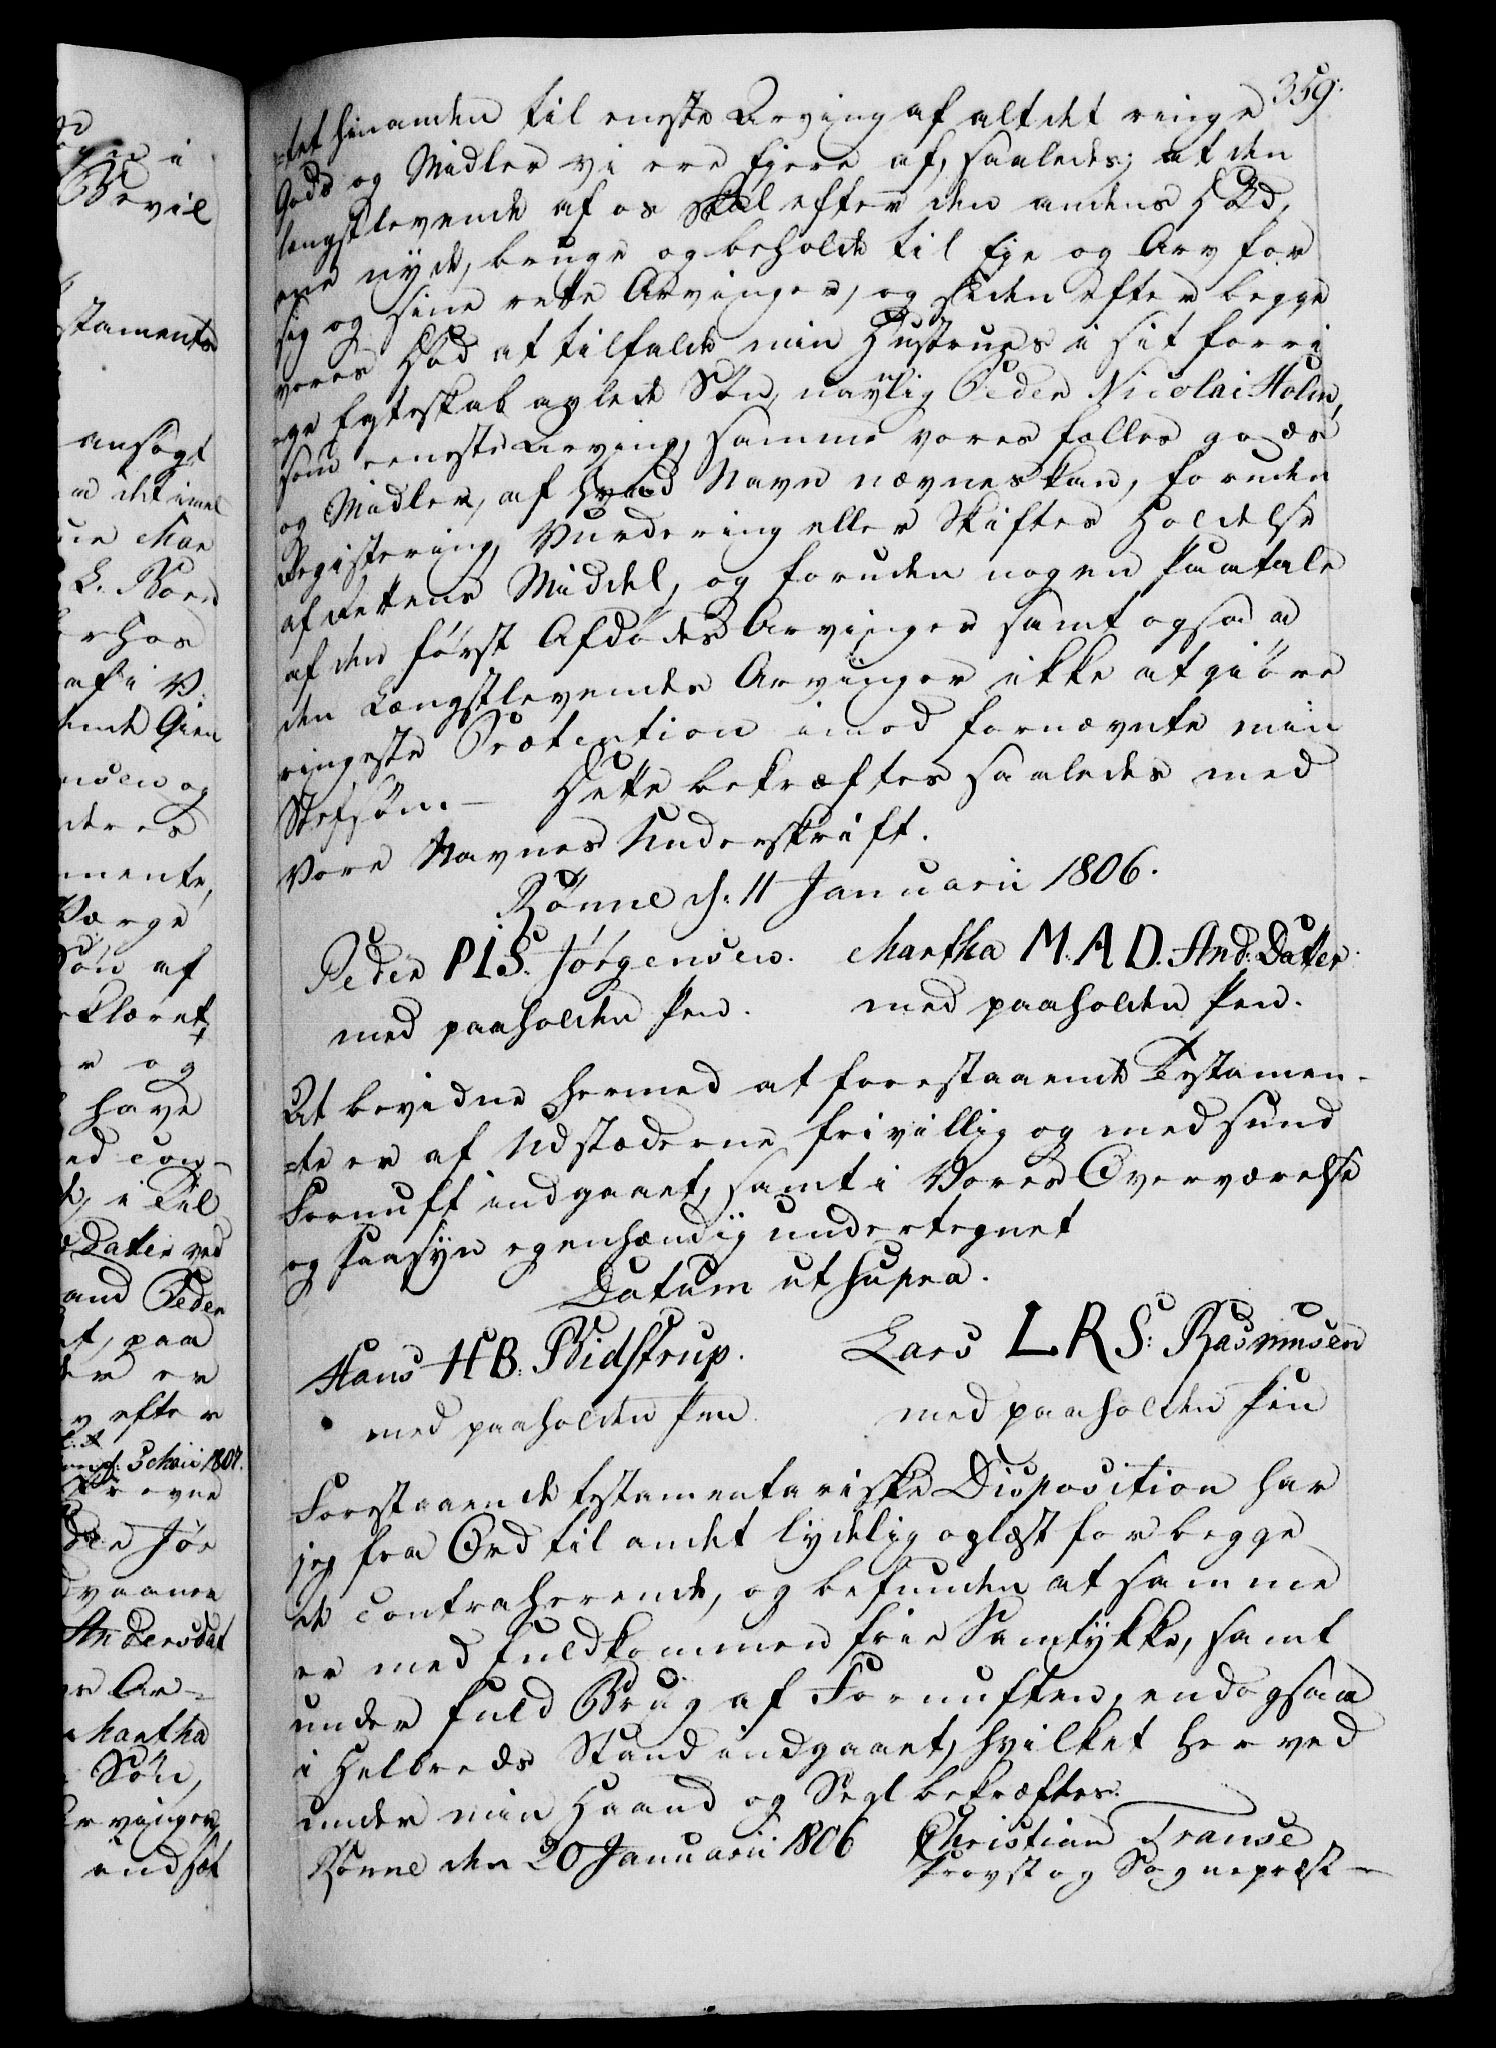 359.
=tet hinanden til eneste Arving af alt det ringe
Gods og Midler vi ere Ejere af, saaledes; at den
længstlevende af os skal efter den andens Død,
ene nyde, bruge og beholde til Eje og Arv for
sig og sine rette Arvinger, og siden efter begge
vores Død at tilfalde min Hustrues i sit forri
ge Egteskab avlede Søn, navnlig Peder Nicolai Holm,
som eeneste Arving, samme vores fælles gods
og Midler, af hvad Navn nævnes kan, foruden
Registering, Vurdering eller Skiftes Holdelse
af Rettens Middel, og foruden nogen Paatale
af den først Afdødes Arvinger samt ogsaa
den Længstlevendes Arvinger ikke at giøre
ringeste Prætention imod fornævnte min
Stefsøn. — Dette bekræftes saaledes med
vore Navnes Underskrift.
Rønne d: 11 Januarii 1806.
Peder P.I.S. Jørgensen. Martha M.A.D. And: Datter.
med paaholden Pen. med paaholden Pen.
At bevidne hermed at forestaaende Testamen-
=te er af Udstæderne frivillig og med sund
Fornuft indgaaet, samt i Vores Overværelse
og Paasyn egenhændig undertegnet
Datum ut supra.
Hans H B. Bidstrup. Lars L R S: Rasmusen
med paaholden Pen. med paaholden Pen
Forestaaende testamentariske Disposition har
jeg fra Ord til andet lydelig oplæst for begge
de contraherende, og befunden at samme
er med fuldkommen frie Samtykke, samt
under fuld Brug af Fornuften, endogsaa
i Helbreds Stand indgaaet, hvilket herved
under min Haand og Segl bekræftes.
Rønne den 20 Januarii 1806 Christian Franse
Provst og Sognepræst